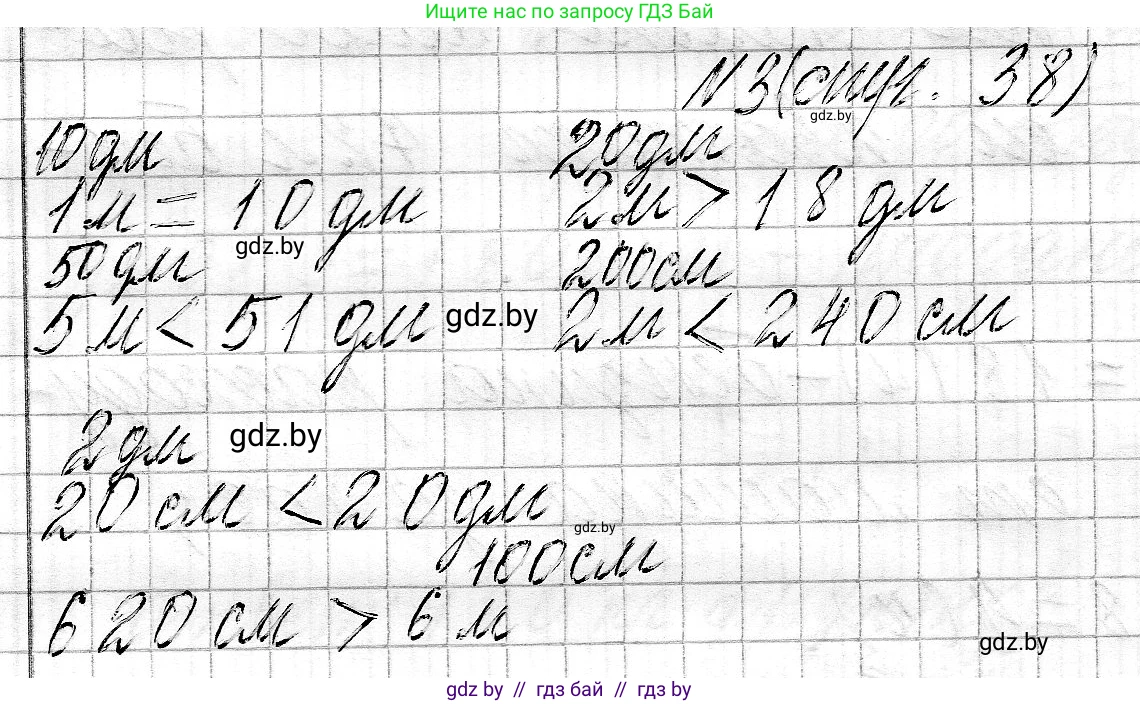 Ищите нас по запросу ГДЗ Бай
N3(стр. 38)
gdz.by
10дм 20дм
1м = 10 дм 2м > 18 дм
gdz.by
50дм 200см
5м < 51 дм gdz.by 2м < 240 см
2дм gdz.by
20 см < 20дм
gdz.by
100см
620 см > 6 м
gdz.by
gdz by // гдз бай // гдз by